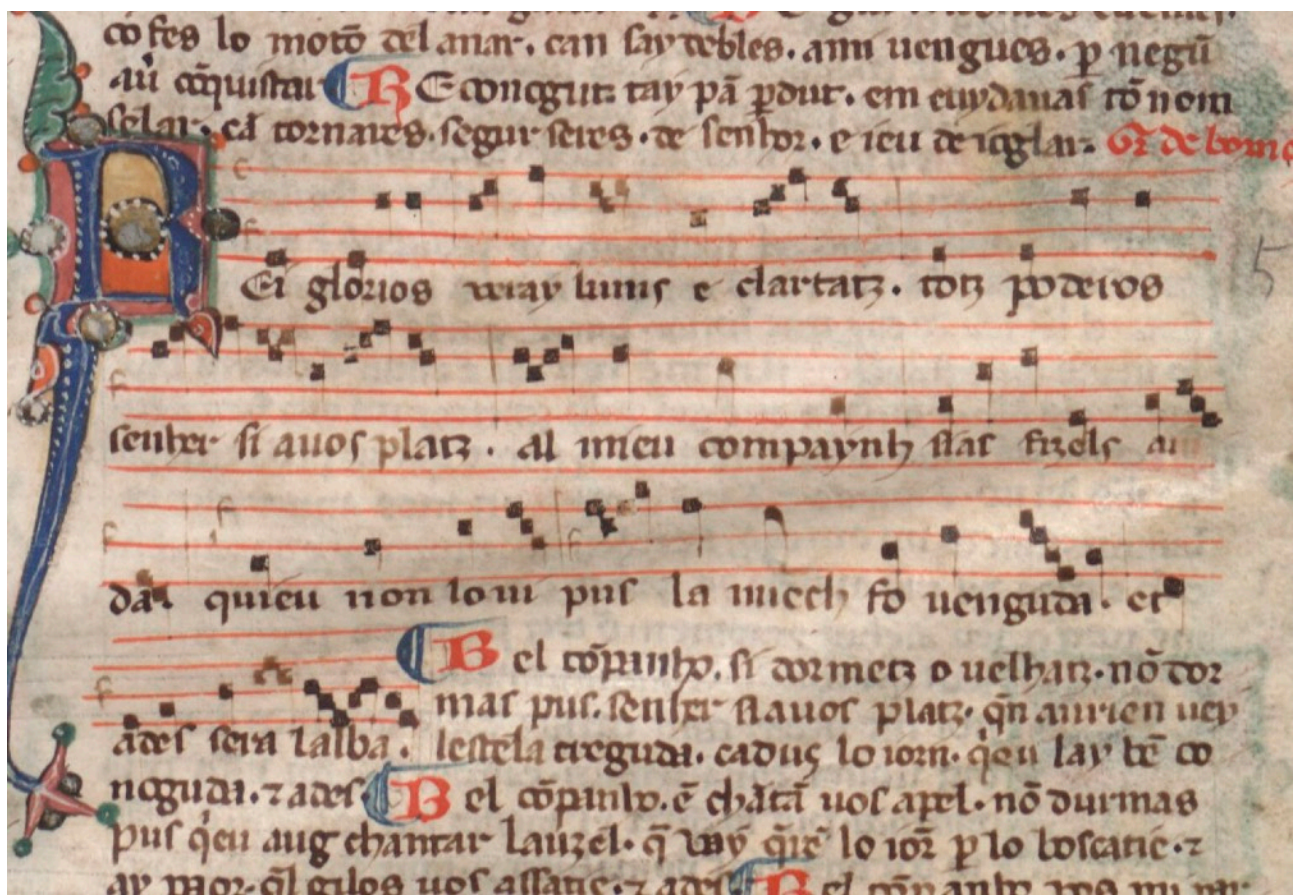 co fes lo motō del anar. can say debles. ann uengues. p negū
au cōquistar RE conogut tay pā pdut. em cuydauas tō nom
selar. cā tornares. segur seres. de senhor. e ieu de ioglar. Gr de born
REi glorios veray lums e clartatz. totz poderos
senher si auos platz. al mieu companyh sias fizels aiu
da. quieu non lo ui pus la nuech fo uenguda. et
ades sera lalba.
Bel cōpanho. si dormetz o uelhatz. nō dor
mas pus. senher si auos platz. qn aurien uey
lestela creguda. cadus lo iorn. qeu lay bē co
noguda. ⁊ ades Bel cōpanho. ē chātā uos apel. nō durmas
pus qeu aug chantar lauzel. q̄ vay q̄rē lo iōr p lo boscatie. ⁊
ay paor. ql gilos uos assatie. ⁊ ades Bel cōpanho
5